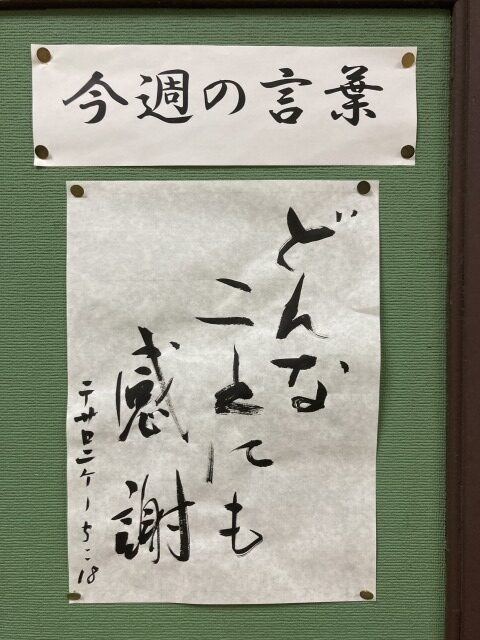 今週の言葉
どんな
ことにも
感謝
テサロニケ一5:18